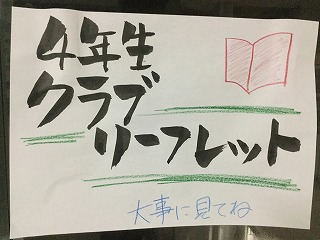 4年生
クラブ
リーフレット
大事に見てね